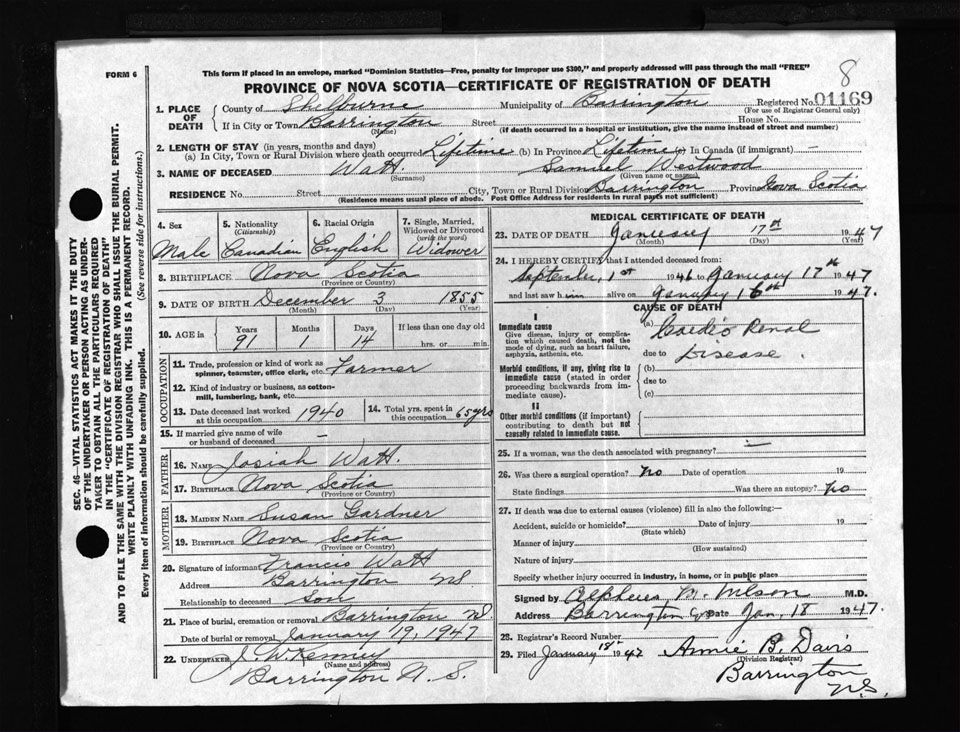 8
FORM 6
This form if placed in an envelope, marked "Dominion Statistics—Free, penalty for improper use $300," and properly addressed will pass through the mail "FREE"
PROVINCE OF NOVA SCOTIA—CERTIFICATE OF REGISTRATION OF DEATH
1. PLACE OF DEATH County of Shelburne Municipality of Barrington Registered No. 01169
(For use of Registrar General only)
If in City or Town Barrington Street House No.
(Name) (If death occurred in a hospital or institution, give the name instead of street and number)
2. LENGTH OF STAY (in years, months and days)
(a) In City, Town or Rural Division where death occurred Lifetime (b) In Province Lifetime (c) In Canada (if immigrant) —
3. NAME OF DECEASED Watt Samuel Westwood
(Surname) (Given name or names)
RESIDENCE No. Street City, Town or Rural Division Barrington Province Nova Scotia
(Residence means usual place of abode. Post Office Address for residents in rural parts not sufficient)
4. Sex 5. Nationality (Citizenship) 6. Racial Origin 7. Single, Married, Widowed or Divorced (write the word)
Male Canadian English Widower
8. BIRTHPLACE Nova Scotia
(Province or Country)
9. DATE OF BIRTH December 3 1855
(Month) (Day) (Year)
10. AGE is in Years Months Days If less than one day old
91 1 14 hrs. or min.
OCCUPATION
11. Trade, profession or kind of work as spinner, teamster, office clerk, etc. Farmer
12. Kind of industry or business, as cotton-mill, lumbering, bank, etc.
13. Date deceased last worked at this occupation 1940 14. Total yrs. spent in this occupation 65 yrs
15. If married give name of wife or husband of deceased —
FATHER
16. NAME Josiah Watt
17. BIRTHPLACE Nova Scotia
(Province or Country)
MOTHER
18. MAIDEN NAME Susan Gardner
19. BIRTHPLACE Nova Scotia
(Province or Country)
20. Signature of informant Francis Watt
Address Barrington NS
Relationship to deceased Son
21. Place of burial, cremation or removal Barrington NS
Date of burial or removal January 19, 1947
22. UNDERTAKER J. W. Kenney
(Name and address)
Barrington N. S.
MEDICAL CERTIFICATE OF DEATH
23. DATE OF DEATH January 17th 1947
(Month) (Day) (Year)
24. I HEREBY CERTIFY that I attended deceased from:
September 1st 1946 to January 17th 1947
and last saw h alive on January 16th 1947.
CAUSE OF DEATH
I
Immediate cause (a) Cardio Renal
Give disease, injury or complication which caused death, not the mode of dying, such as heart failure, asphyxia, asthenia, etc.
due to Disease.
Morbid conditions, if any, giving rise to immediate cause (stated in order proceeding backwards from immediate cause).
(b)
due to
(c)
II
Other morbid conditions (if important) contributing to death but not causally related to immediate cause.
25. If a woman, was the death associated with pregnancy? —
26. Was there a surgical operation? No Date of operation 19
State findings Was there an autopsy? No
27. If death was due to external causes (violence) fill in also the following:—
Accident, suicide or homicide? Date of injury 19
(State which)
Manner of injury
(How sustained)
Nature of injury
Specify whether injury occurred in industry, in home, or in public place
Signed by Alpheus M. Wilson M.D.
Address Barrington Date Jan. 18 1947.
28. Registrar's Record Number
29. Filed January 18th 1947 Annie B. Davis
(Division Registrar)
Barrington
N.S.
SEC. 46—VITAL STATISTICS ACT MAKES IT THE DUTY
OF THE UNDERTAKER OR PERSON ACTING AS UNDER-
TAKER TO OBTAIN ALL THE PARTICULARS REQUIRED
IN THE "CERTIFICATE OF REGISTRATION OF DEATH"
AND TO FILE THE SAME WITH THE DIVISION REGISTRAR WHO SHALL ISSUE THE BURIAL PERMIT.
WRITE PLAINLY WITH UNFADING INK. THIS IS A PERMANENT RECORD.
Every item of information should be carefully supplied. (See reverse side for instructions.)